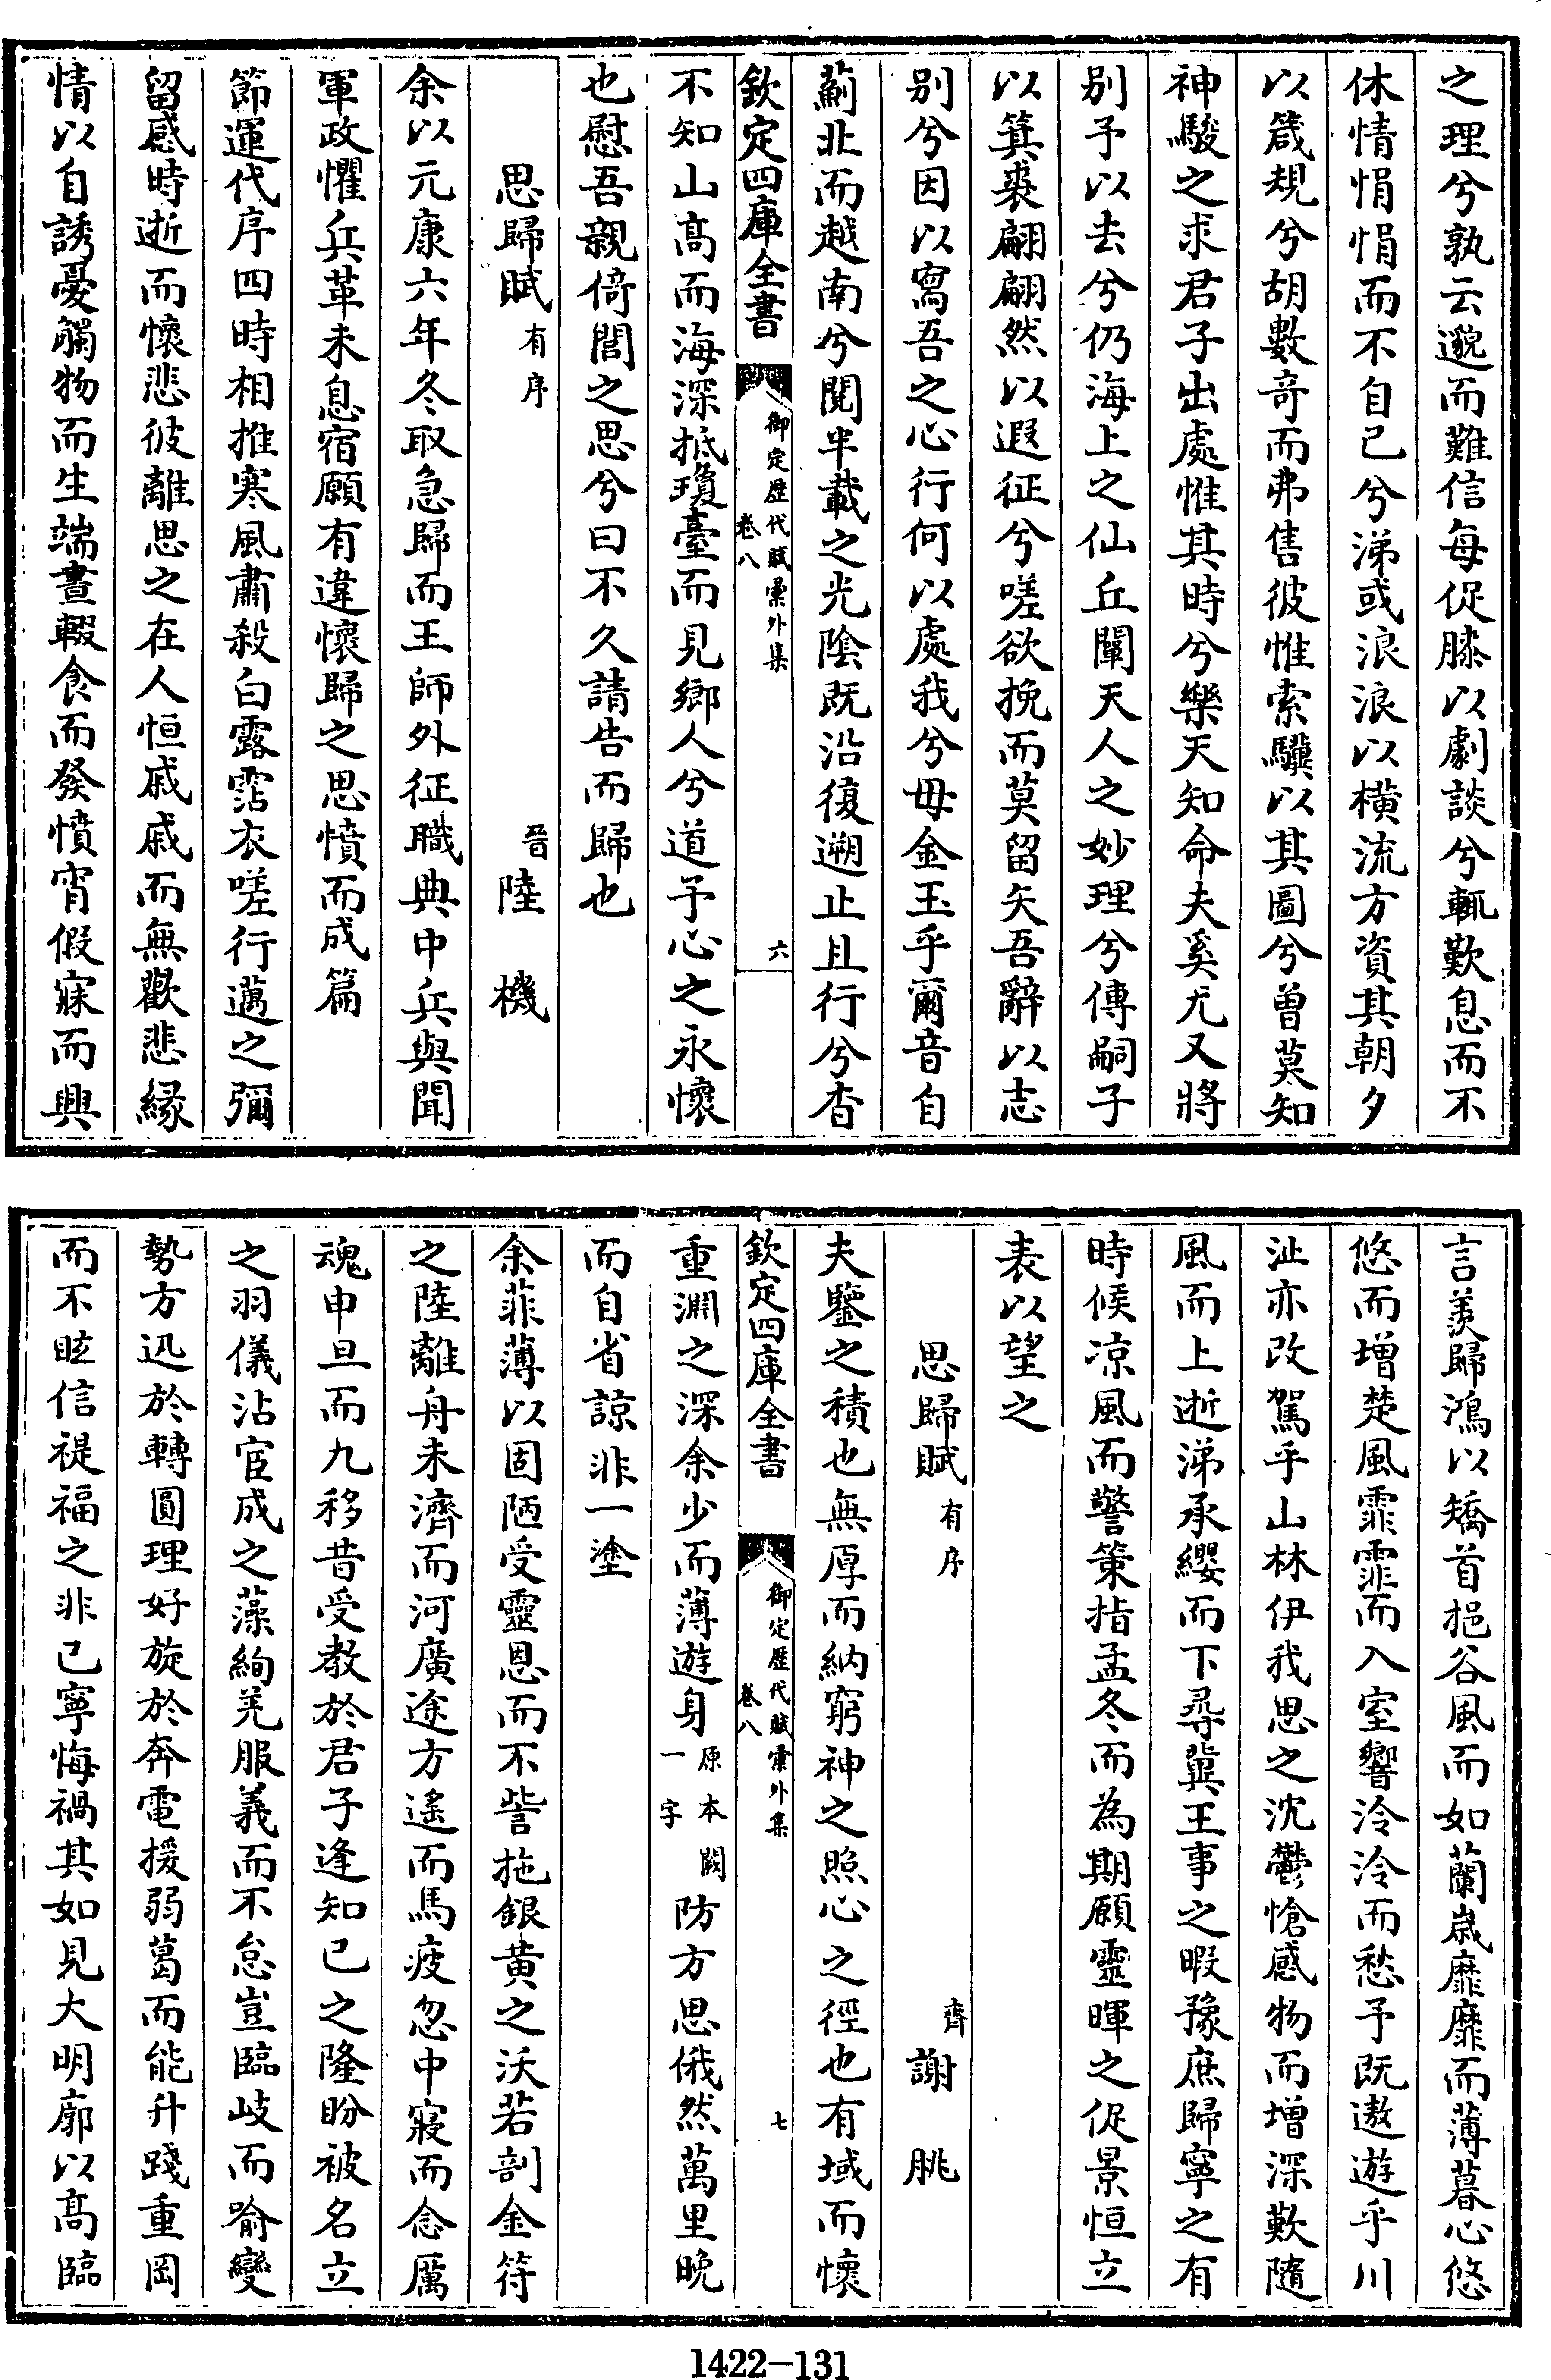 之理兮孰云邈而難信每促膝以劇談兮輒歎息而不
休情悁悁而不自已兮涕或浪浪以橫流方資其朝夕
以箴規兮胡數奇而弗售彼惟索驥以其圖兮曾莫知
神駿之求君子出處惟其時兮樂天知命夫奚尤又將
别予以去兮仍海上之仙丘闡天人之妙理兮傳嗣子
以箕裘翩翩然以遐征兮嗟欲挽而莫留矢吾辭以志
别兮因以寫吾之心行何以處我兮毋金玉乎爾音自
薊北而越南兮閱半載之光陰既沿復遡止且行兮杳
欽定四庫全書
御定歷代賦彙外集
卷八
六
不知山髙而海深抵瓊臺而見鄉人兮道予心之永懷
也慰吾親倚閭之思兮曰不久請告而歸也
思歸賦有序 晉陸機
余以元康六年冬取急歸而王師外征職典中兵與聞
軍政懼兵革未息宿願有違懷歸之思憤而成篇
節運代序四時相推寒風肅殺白露霑衣嗟行邁之彌
留感時逝而懷悲彼離思之在人恒戚戚而無歡悲緣
情以自誘憂觸物而生端晝輟食而發憤宵假寐而興
言羨歸鴻以矯首挹谷風而如蘭歲靡靡而薄暮心悠
悠而增楚風霏霏而入室響泠泠而愁予既遨遊乎川
沚亦改駕乎山林伊我思之沈鬱愴感物而增深歎隨
風而上逝涕承纓而下尋冀王事之暇豫庶歸寧之有
時候凉風而警策指孟冬而為期願靈暉之促景恒立
表以望之
思歸賦有序 齊謝朓
夫鑒之積也無厚而納窮神之照心之徑也有域而懷
欽定四庫全書
御定歷代賦彙外集
卷八
七
重淵之深余少而薄遊身原本闕一字防方思俄然萬里晚
而自省諒非一塗
余菲薄以固陋受靈恩而不訾拖銀黄之沃若剖金符
之陸離舟未濟而河廣途方遙而馬疲忽中寢而念厲
魂申旦而九移昔受教於君子逢知已之隆盼被名立
之羽儀沾宦成之藻絢羌服義而不怠豈臨岐而喻變
勢方迅於轉圓理好旋於奔電援弱葛而能升踐重岡
而不眩信禔福之非已寧悔禍其如見大明廓以髙臨
1422-131